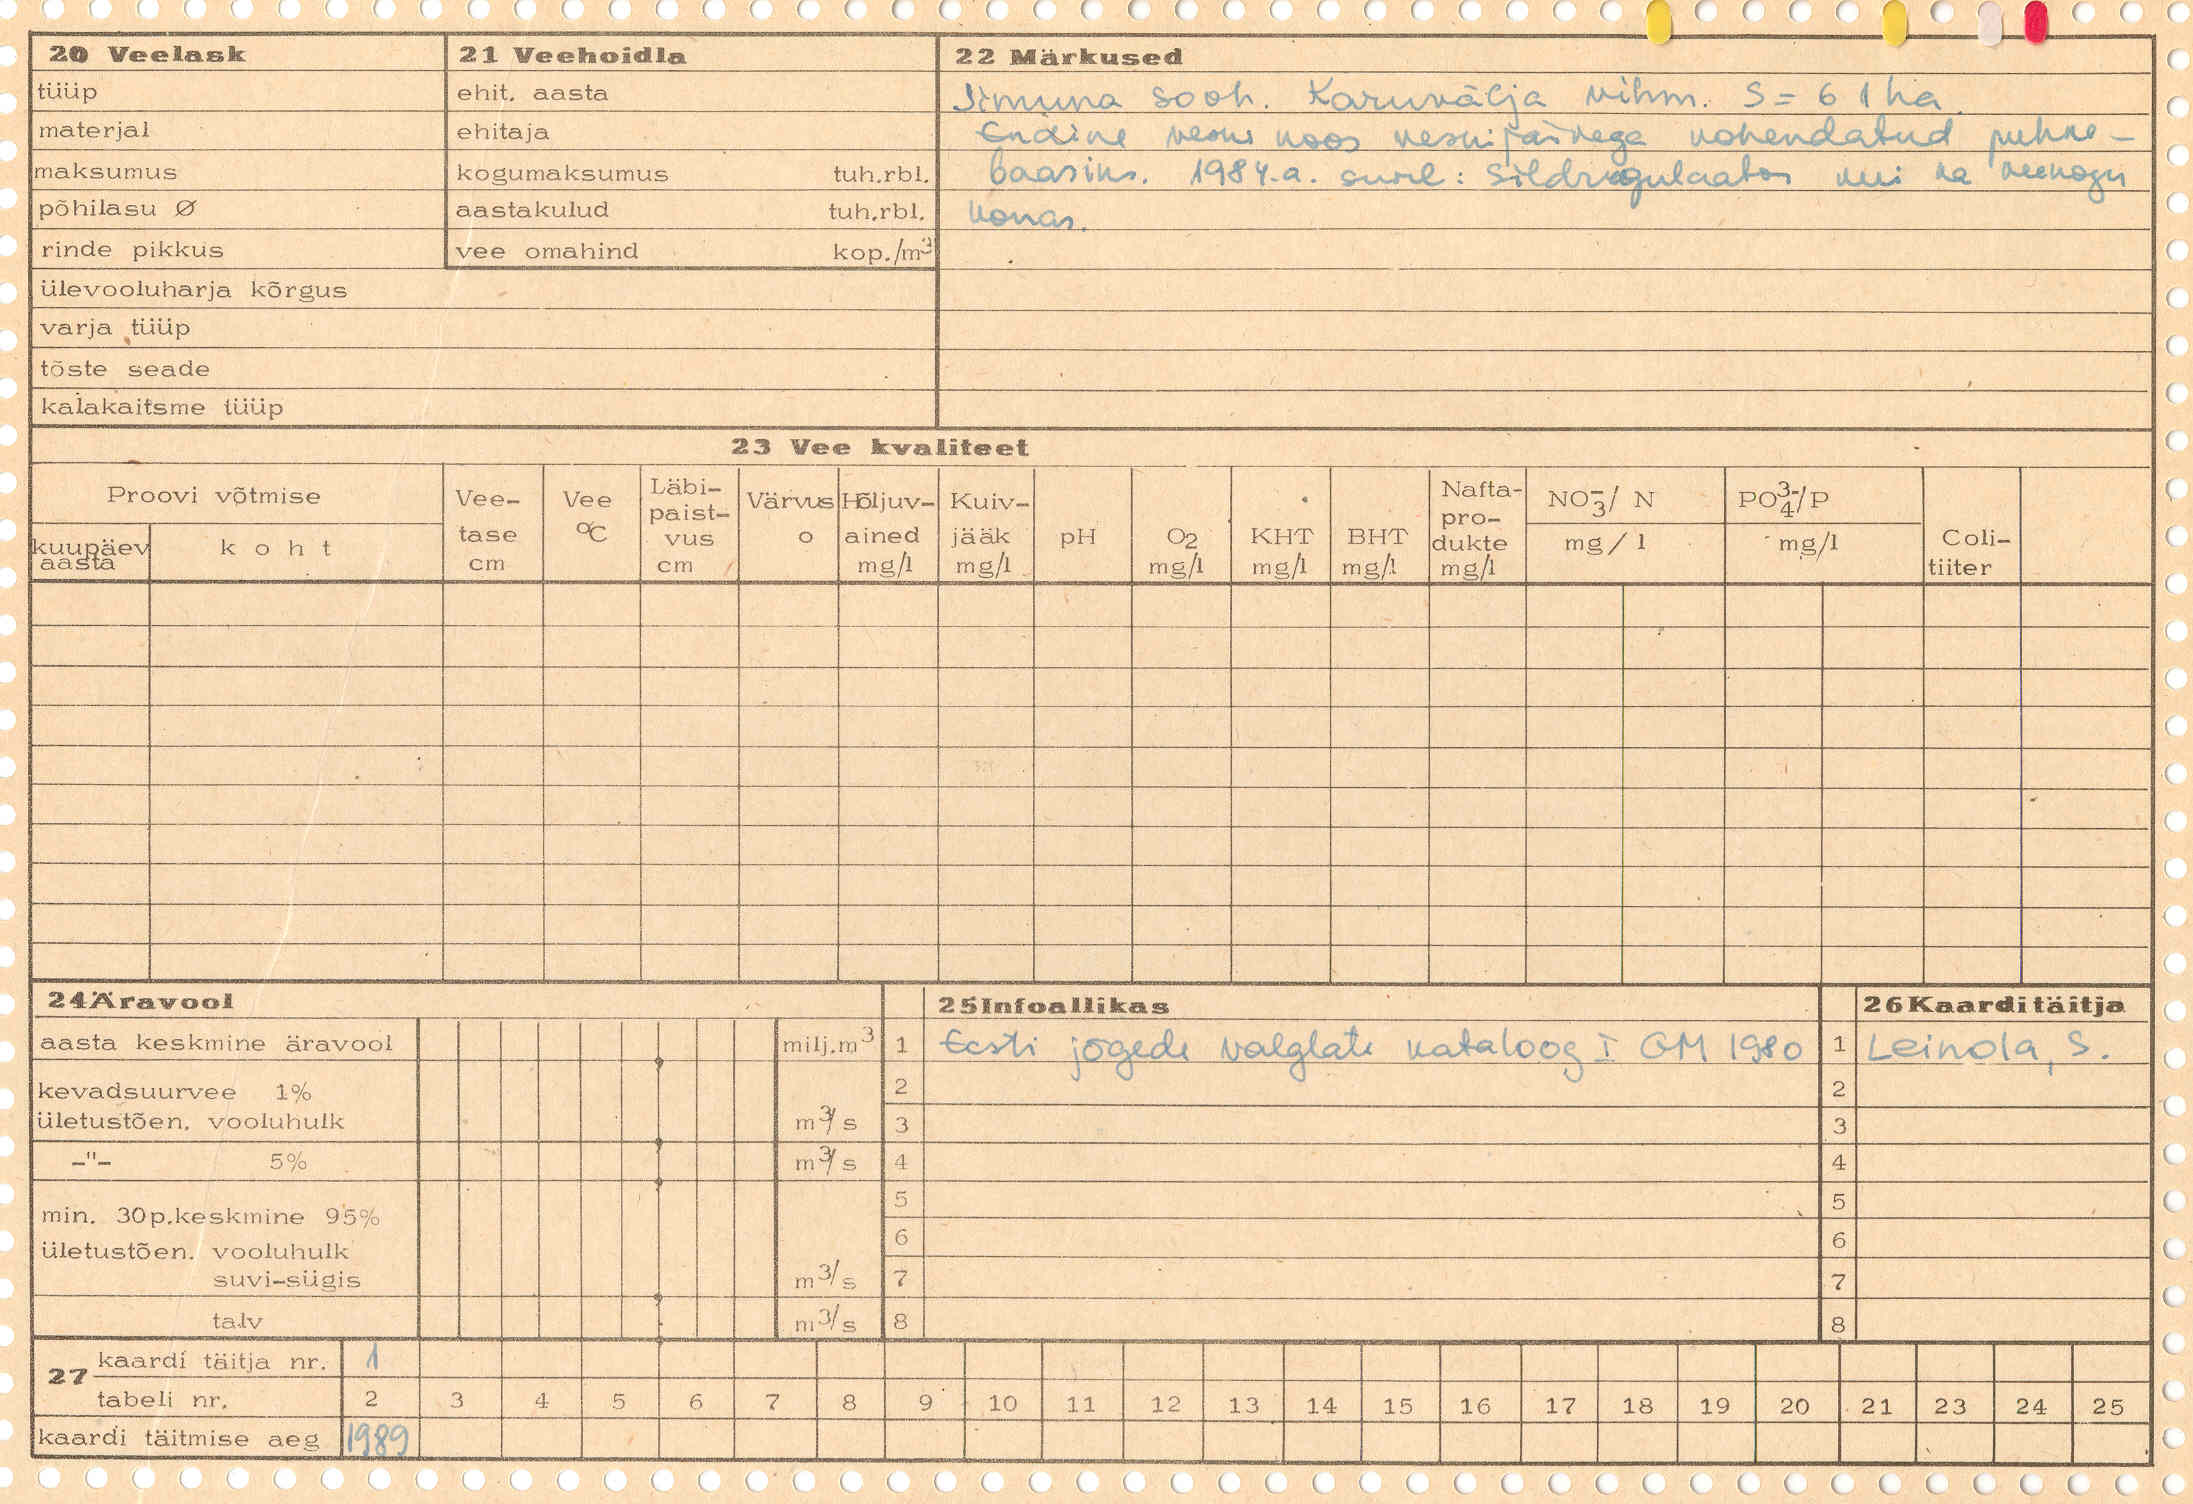 20 Veelask
tüüp
materjal
maksumus
põhilasu Ø
rinde pikkus
ülevooluharja kõrgus
varja tüüp
tõste seade
kalakaitsme tüüp
21 Veehoidla
ehit. aasta
ehitaja
kogumaksumus tuh.rbl.
aastakulud tuh.rbl.
vee omahind kop./m³
22 Märkused
Simuna sooh. Karuvälja vihm. S = 61 ha.
Endine veski koos veskijärvega kohendatud puhke-
baasiks. 1984.a. suvel: Sildregulaator kui ka veekogu
korras.
23 Vee kvaliteet
Proovi võtmise
kuupäev aasta
koht
Vee-
tase
cm
Vee
°C
Läbi-
paist-
vus
cm
Värvus
o
Hõljuv-
ained
mg/l
Kuiv-
jääk
mg/l
pH
O₂
mg/l
KHT
mg/l
BHT
mg/l
Nafta-
pro-
dukte
mg/l
NO₃⁻/ N
mg/l
PO₄³⁻/P
mg/l
Coli-
tiiter
24 Äravool
aasta keskmine äravool milj.m³
kevadsuurvee 1%
ületustõen. vooluhulk m³/s
-"- 5% m³/s
min. 30p.keskmine 95%
ületustõen. vooluhulk
suvi-sügis m³/s
talv m³/s
25 Infoallikas
1 Eesti jõgede valglate kataloog I GM 1980
2
3
4
5
6
7
8
26 Kaarditäitja
1 Leinola, S.
2
3
4
5
6
7
8
27
kaardi täitja nr. 1
tabeli nr. 2 3 4 5 6 7 8 9 10 11 12 13 14 15 16 17 18 19 20 21 23 24 25
kaardi täitmise aeg 1989